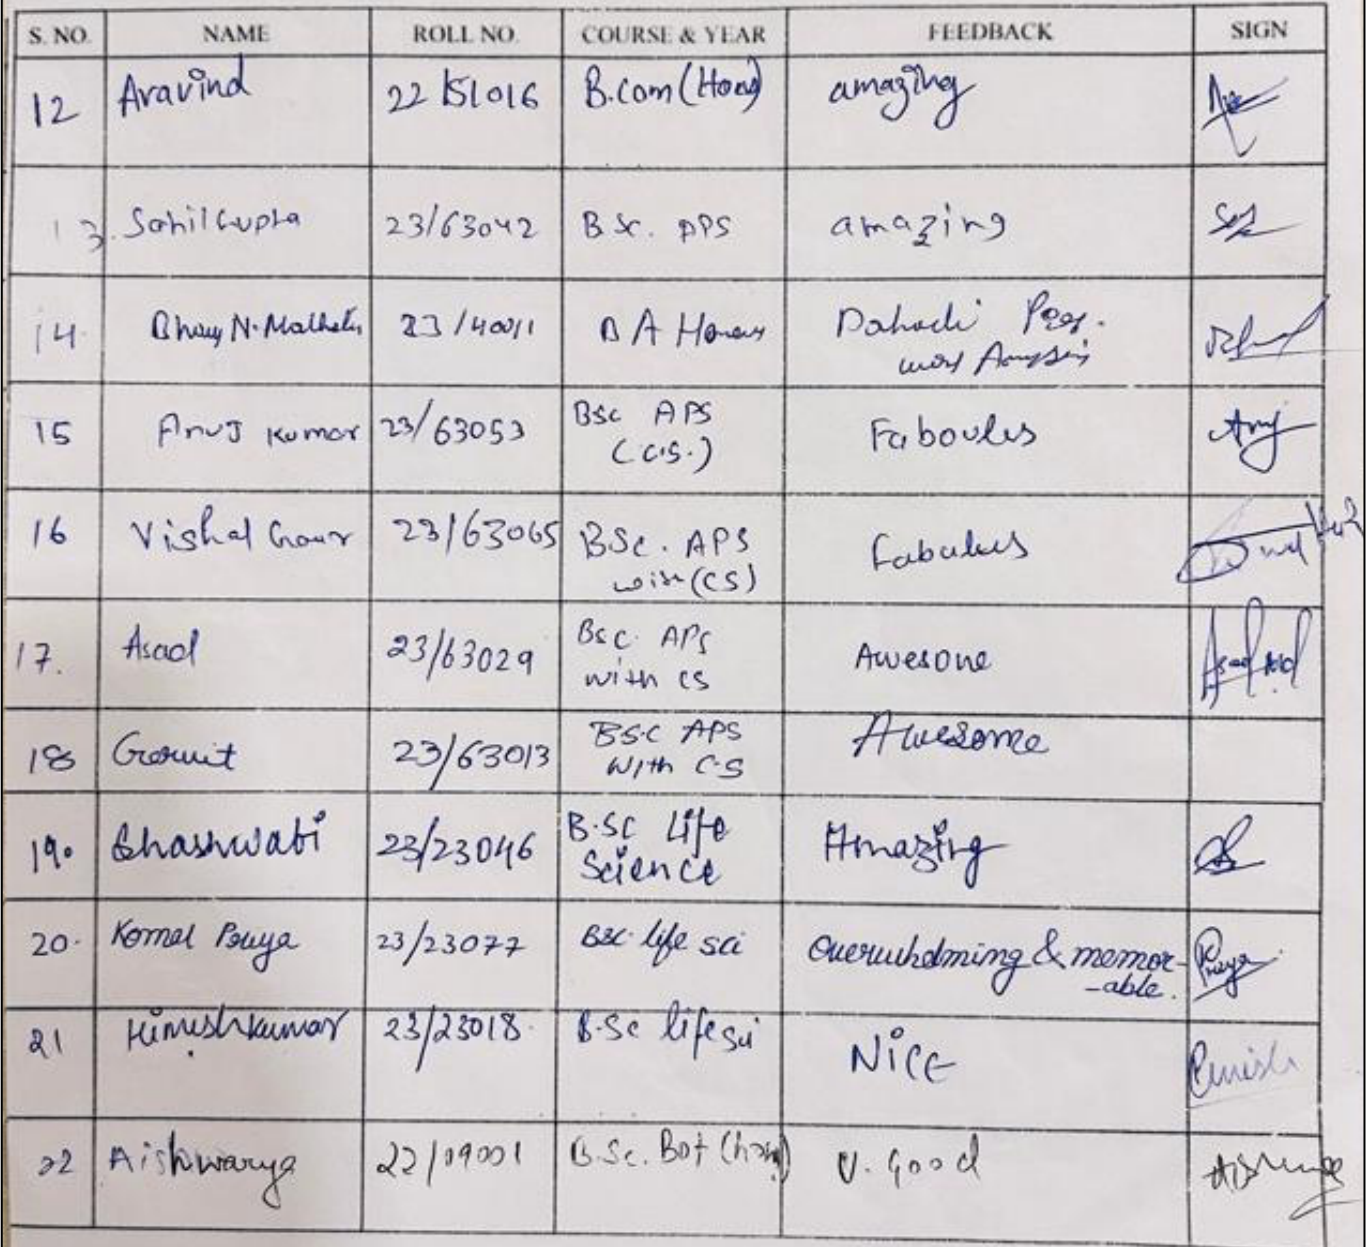 S. NO. NAME ROLL NO. COURSE & YEAR FEEDBACK SIGN
12 Aravind 22/51016 B.com (Hons) amazing
13. Sahil Gupta 23/63042 B Sc. APS amazing
14. N. 23/40011 B A Honours
15 Anuj Kumar 23/63053 BSc APS (CS.) Faboules Anuj
16 Vishal Gaur 23/63065 BSc. APS with (CS) Fabulus
17. Asad 23/63029 Bsc. APS with CS Awesone Asad
18 23/63013 BSC APS With C.S Awesome
19. Shashwati 23/23046 B.SC Life Science Amazing
20. Komal Priya 23/23077 BSc. life sci Overwhelming & memor-
-able. Priya
21 Himesh kumar 23/23018. B.Sc life sci NICE
22 Aishwarya 22/09001 B.Sc. Bot (hons) V. Good